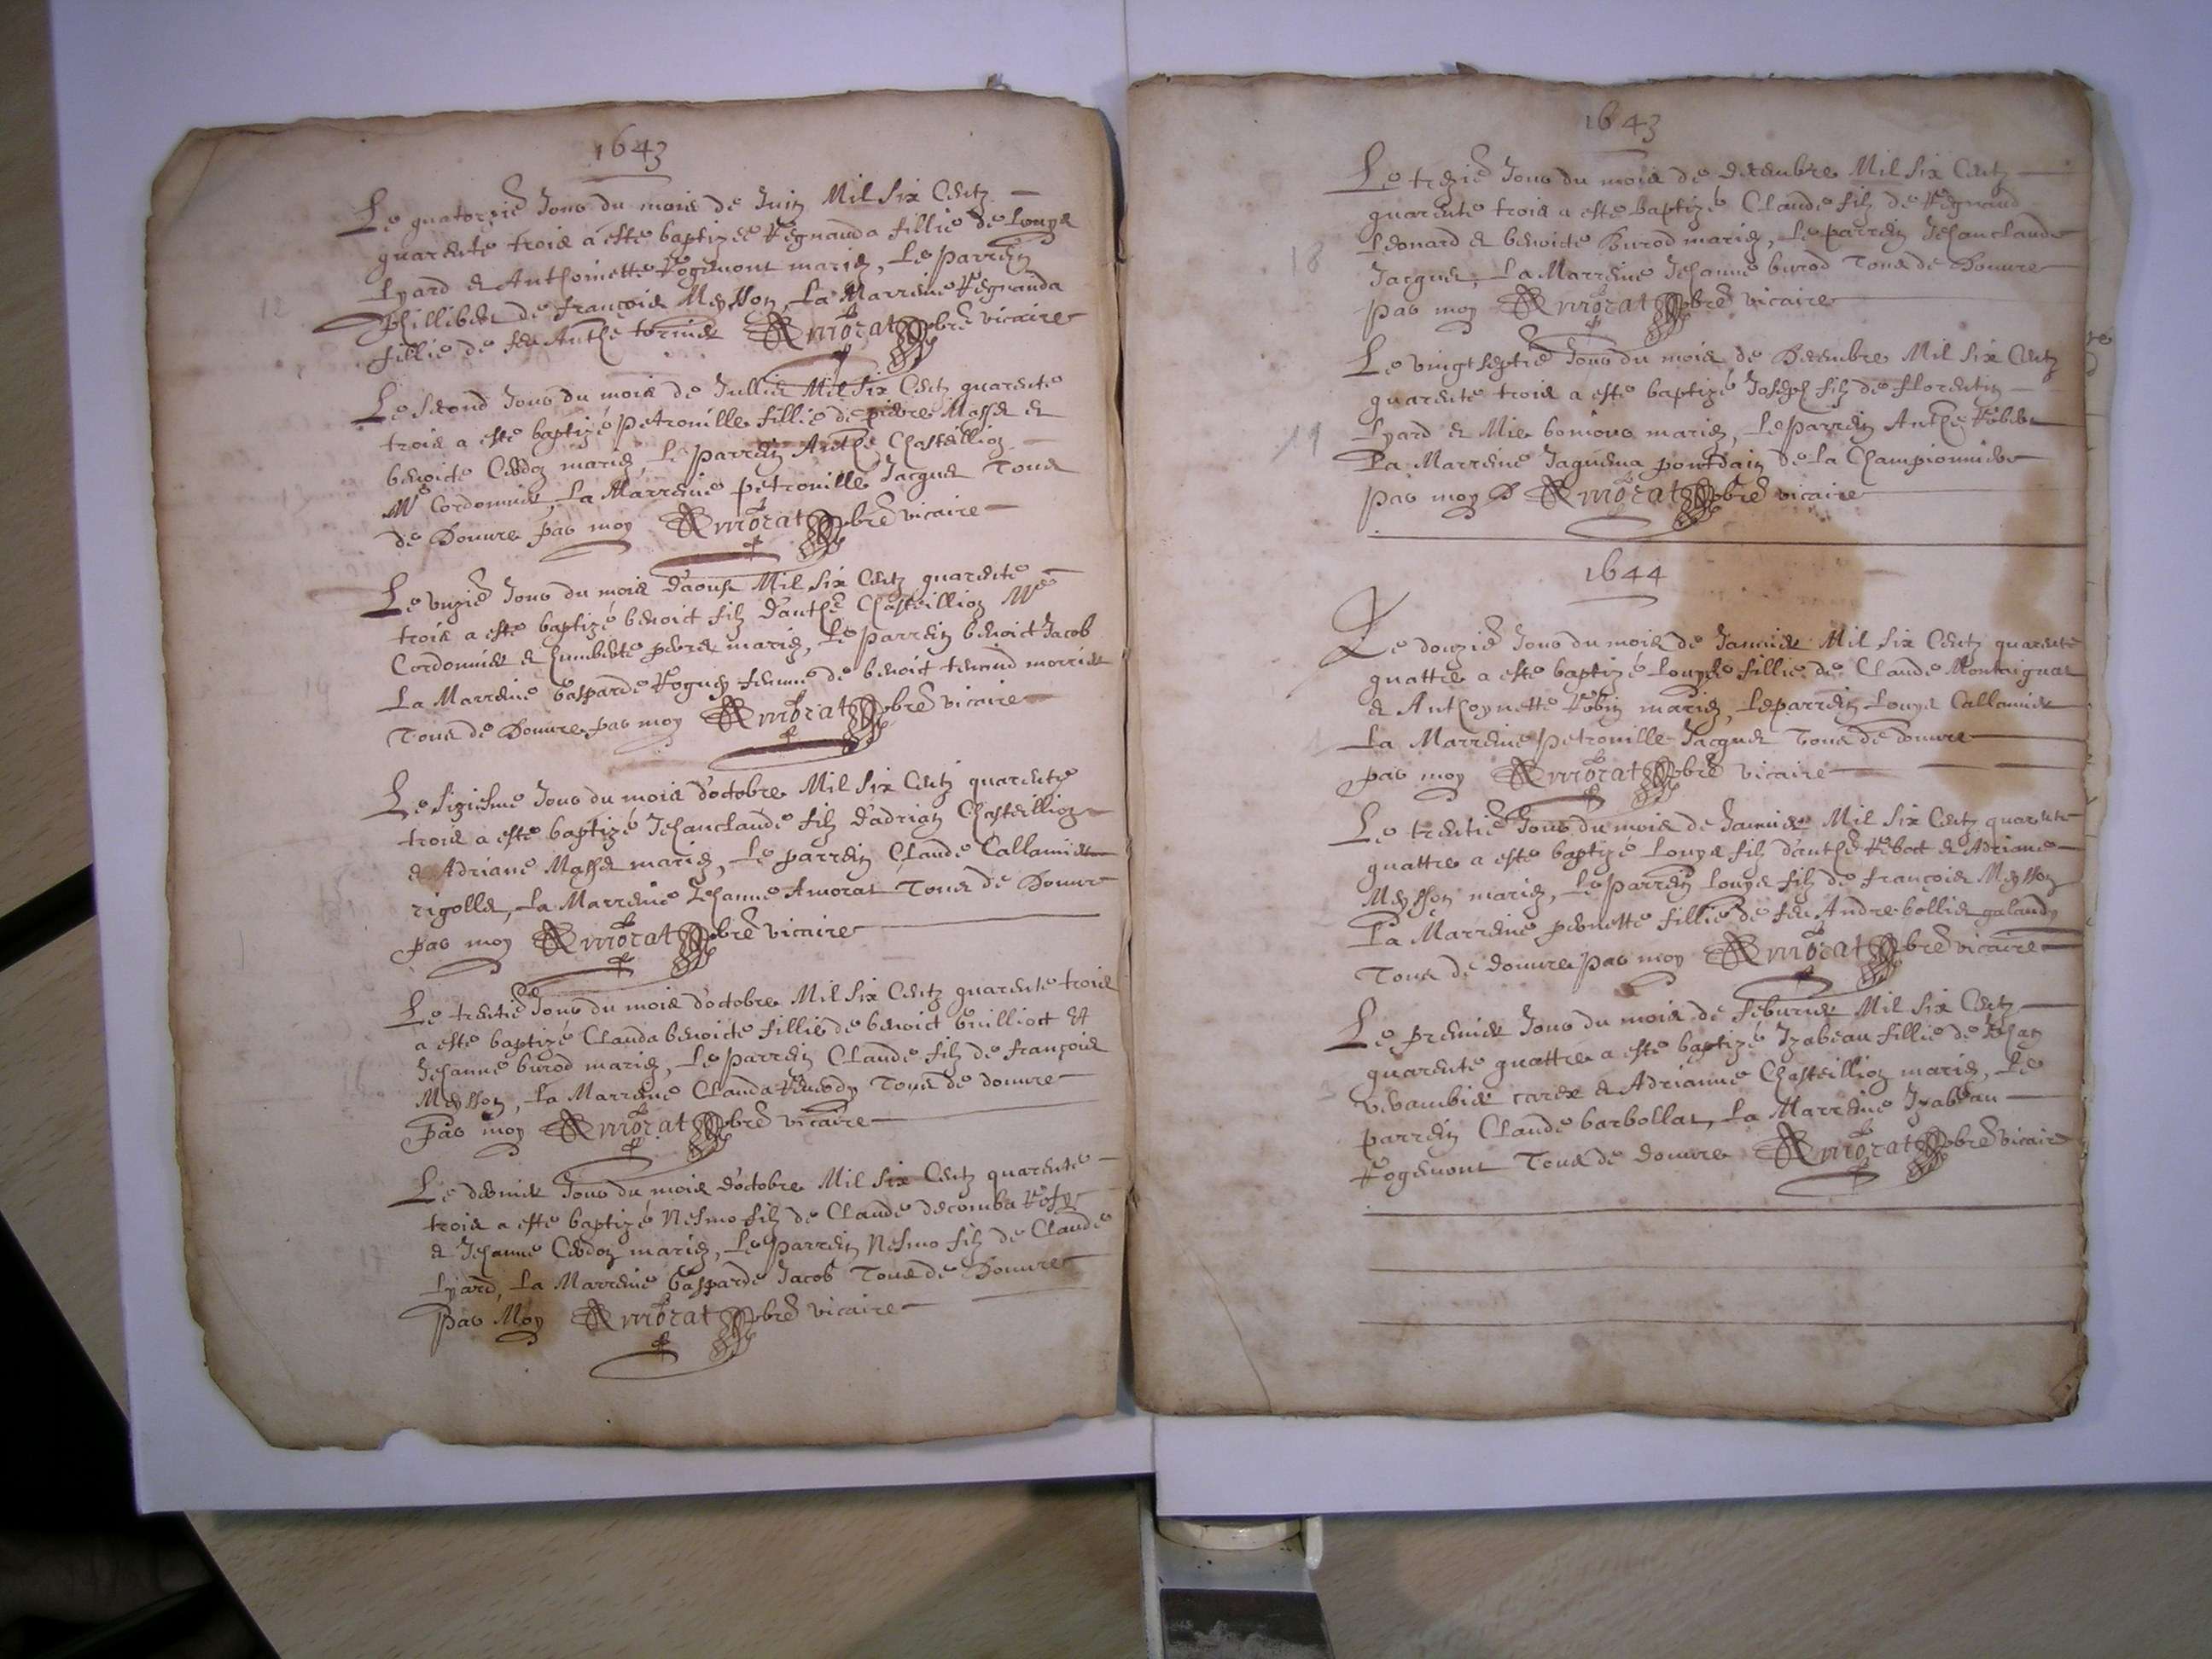 1643
Le quatorzie Jour du mois de Juin Mil Six Centz
quarente trois a este baptizee Regnauda fillie de Louys
Lyard et Anthoinette Rogemont mariez, Le parrein
phillibert de françois Meysson La Marrene Regnauda
fillie de feu Anthe tornier Amorat pbre vicaire
Le second Jour du mois de Jullie Mil Six Centz quarente
trois a este baptizé petronille fillie de pierre Masse et
benoicte Cerdon mariez, Le parrein Anthe Chasteillion
Me Cordonnier, La Marrene petronille Jacquet Tous
de Douure par moy Amorat pbre vicaire
Le unzie Jour du mois d'aoust Mil Six Centz quarente
trois a este baptizé benoict filz d'anthe Chasteillion Me
Cordonnier et humberte mariez, Le parrein benoict Jacob
La Marrene Gasparde femme de benoict
Tous de Douure par moy Amorat pbre vicaire
Le siziesme Jour du mois d'octobre Mil Six Centz quarente
trois a este baptizé Jehanclaude filz d'adrian Chasteillion
et Adriane Masse mariez, Le parrein Claude Callamier
rigollet, La Marrene Jehanne Amorat Tous de Douure
par moy Amorat pbre vicaire
Le trentie Jour du mois d'octobre Mil Six Centz quarente trois
a este baptizé Clauda benoicte fillie de benoict Guilliot Et
Jehanne burod mariez, Le parrein Claude filz de françois
Meysson, La Marrene Clauda Tous de douure
par moy Amorat pbre vicaire
Le dernier Jour du mois d'octobre Mil Six Centz quarente
trois a este baptizé Nesmo filz de Claude decomba
et Jehanne Cerdon mariez, Le parrein Nesmo filz de Claude
Lyard, La Marrene Gasparde Jacob Tous de Douure
par Moy Amorat pbre vicaire
1643
Le trezie Jour du mois de decembre Mil Six Centz
quarente trois a este baptizé Claude filz de Regnaud
18
Leonard et benoicte Burod mariez, Le parrein Jehanclaude
Jacquet, La Marrene Jehanne burod Tous de Douure
par moy Amorat pbre vicaire
Le vingt septie Jour du mois de Decembre Mil Six Centz
quarente trois a este baptizé Joseph filz de florentin
19
Lyard et Mie mariez, Le parrein Anthe
La Marrene Jaquema pontdain de La Championniere
par moy Amorat pbre vicaire
1644
Le douzie Jour du mois de Januier Mil Six Centz quarente
quattre a este baptizé Louyse fillie de Claude Montaignat
et Anthoynette Robin mariez, Le parrein Louys Callamier
La Marrene petronille Jacquet Tous de douure
par moy Amorat pbre vicaire
Le trentie Jour du mois de Januier Mil Six Centz quarente
quattre a este baptizé Louys filz d'anthe et Adriane
Meysson mariez, Le parrein Louys filz de françois Meysson
La Marrene pernette fillie de feu Andre bollier galandy
Tous de douure par moy Amorat pbre vicaire
Le premier Jour du mois de feburier Mil Six Centz
quarente quattre a este baptizé Izabeau fillie de Jehan
et Adrianne Chasteillion mariez, Le
parrein Claude barbollat, La Marrene Izabeau
Rogemont Tous de douure Amorat pbre vicaire